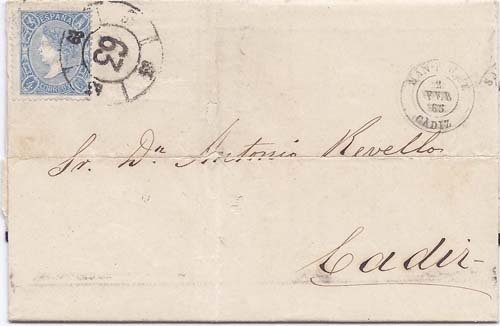 ESPAÑA
CORREOS
63
2
FEB
CADIZ
Sr. Dn Antonio Revello
Cadiz